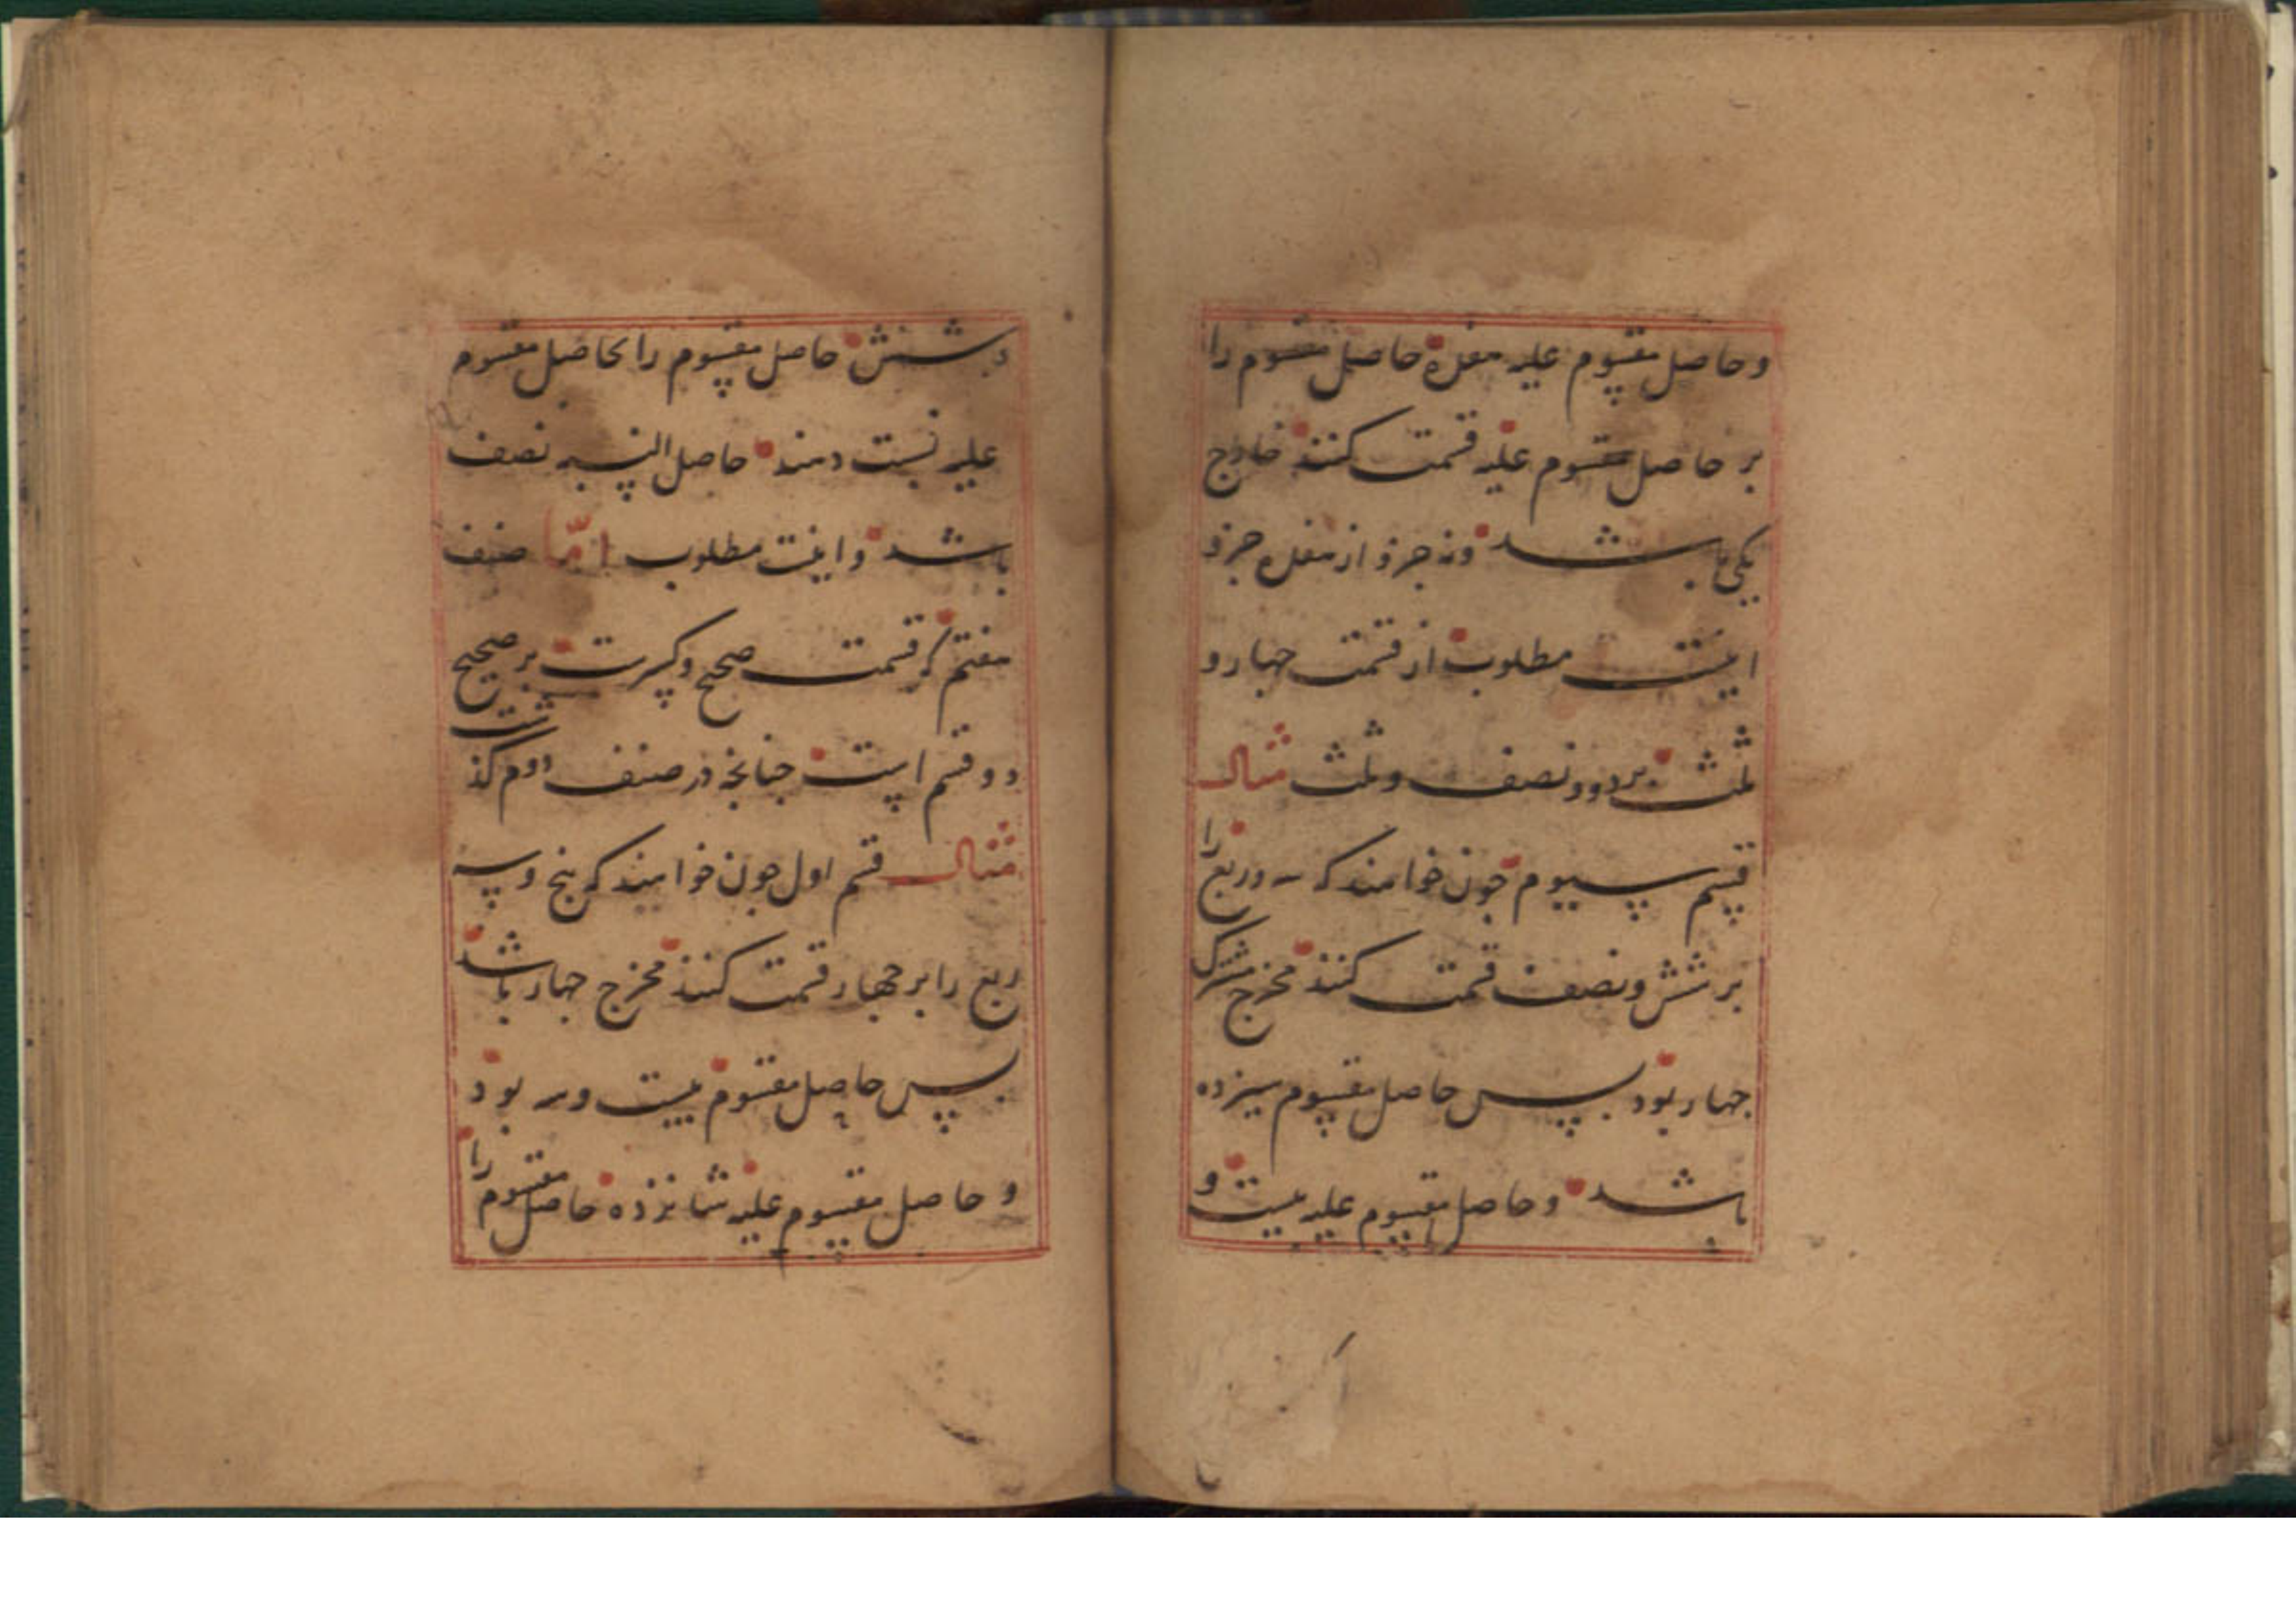 و حاصل مقسوم علیه هفده حاصل مقسوم را
بر حاصل مقسوم علیه قسمت کنند خارج
یکی باشد و نه جزو از هفده جزو
اینست مطلوب از قسمت چهار و
ثلث بر دو و نصف و ثلث مثال
قسم سیوم چون خواهند که سه و ربع را
بر شش و نصف قسمت کنند مخرج مشترک
چهار بود پس حاصل مقسوم سیزده
باشد و حاصل مقسوم علیه بیست و
شش حاصل مقسوم را بحاصل مقسوم
علیه نسبت دهند حاصل النسبه نصف
باشد و اینست مطلوب امّا صنف
هفتم که قسمت صحیح و کسرست بر صحیح
دو قسم است چنانچه در صنف دوم گذشت
مثال قسم اول چون خواهند که پنج و سه
ربع را بر چهار قسمت کنند مخرج چهار باشد
پس حاصل مقسوم بیست و سه بود
و حاصل مقسوم علیه شانزده حاصل مقسوم را